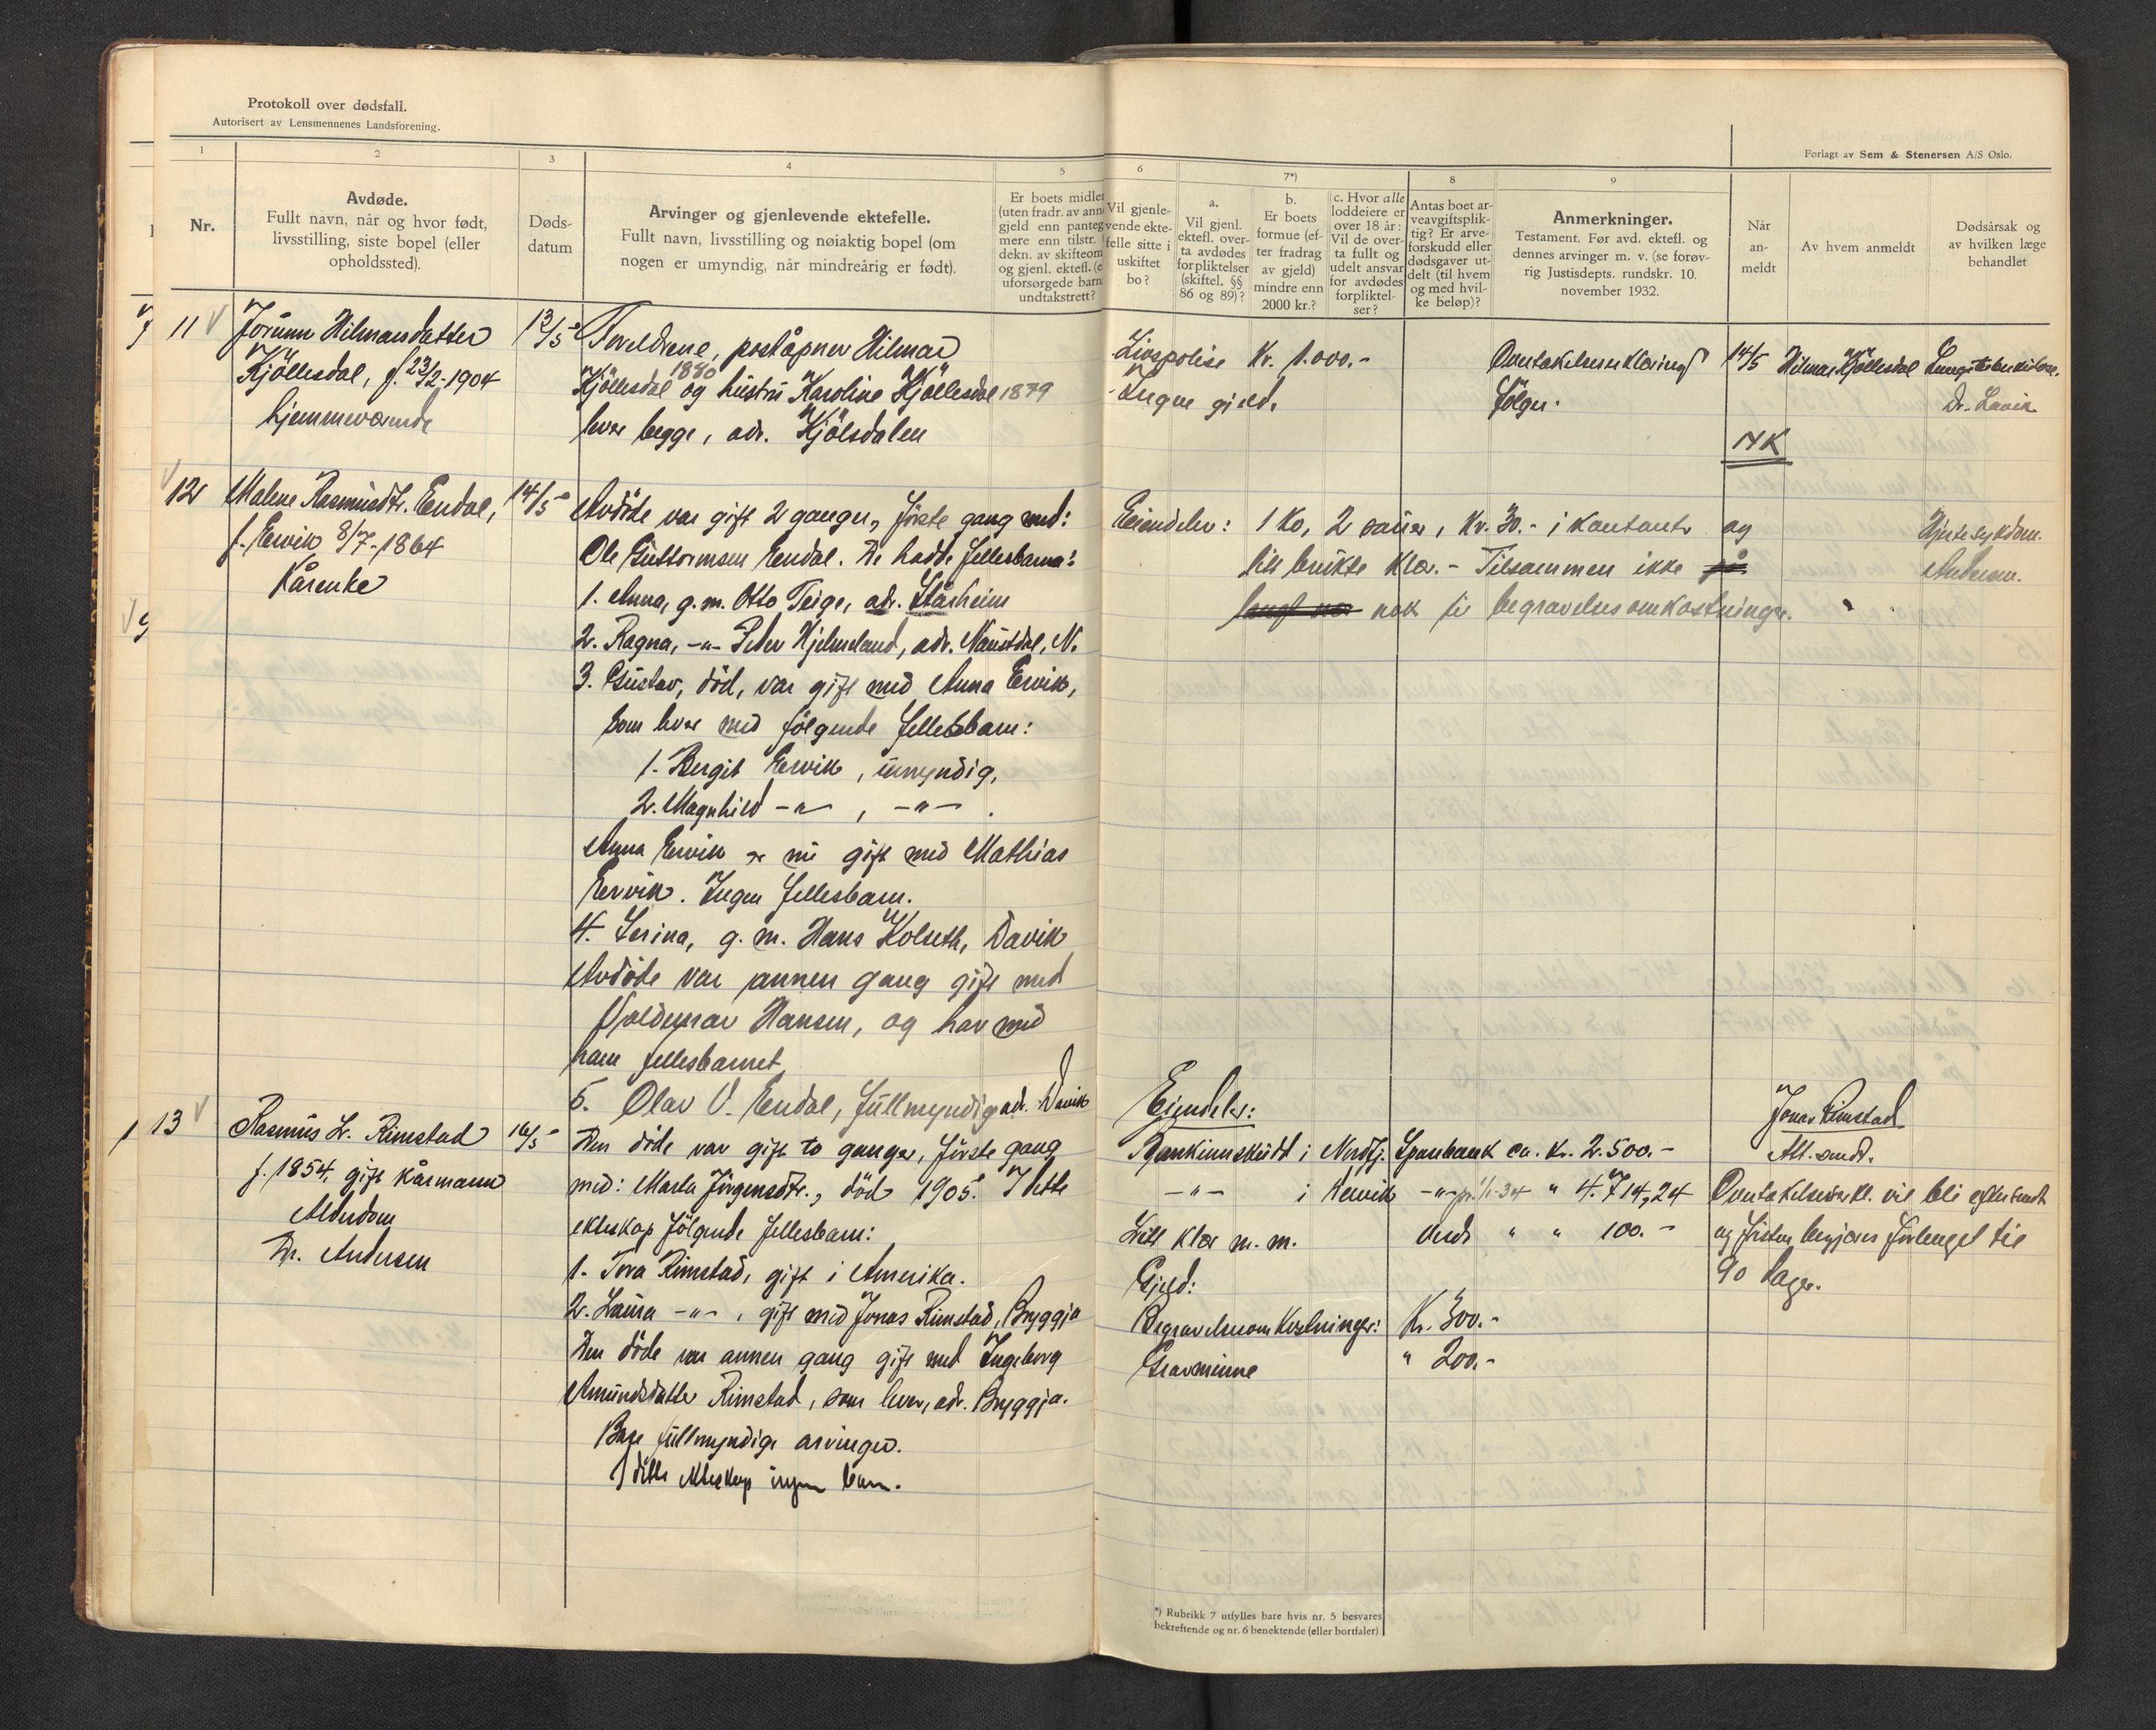 Protokoll over dødsfall.
Autorisert av Lensmennenes Landsforening.
Forlagt av Sem & Stenersen A/S Oslo.
1
2
3
4
5
6
7*)
8
9
Nr.
Avdøde.
Fullt navn, når og hvor født,
livsstilling, siste bopel (eller
opholdssted).
Døds-
datum
Arvinger og gjenlevende ektefelle.
Fullt navn, livsstilling og nøiaktig bopel (om
nogen er umyndig, når mindreårig er født).
Er boets midler
(uten fradr. av ann
gjeld enn panteg
mere enn tilstr.
dekn. av skifteom
og gjenl. ektefl. (e
uforsørgede barn
undtakstrett?
Vil gjenle-
vende ekte-
felle sitte i
uskiftet
bo?
a.
Vil gjenl.
ektefl. over-
ta avdødes
forpliktelser
(skiftel. §§
86 og 89)?
b.
Er boets
formue (ef-
ter fradrag
av gjeld)
mindre enn
2000 kr.?
c. Hvor alle
loddeiere er
over 18 år:
Vil de over-
ta fullt og
udelt ansvar
for avdødes
forpliktel-
ser?
Antas boet ar-
veavgiftsplik-
tig? Er arve-
forskudd eller
dødsgaver ut-
delt (til hvem
og med hvil-
ke beløp)?
Anmerkninger.
Testament. Før avd. ektefl. og
dennes arvinger m. v. (se forøv-
rig Justisdepts. rundskr. 10.
november 1932.
Når
an-
meldt
Av hvem anmeldt
Dødsårsak og
av hvilken læge
behandlet
11 Jorunn Hilmarsdatter
Kjöllesdal, f. 23/2-1904
hjemmeværende
13/5
Foreldrene, poståpner Hilmar
1880
Kjöllesdal og hustru Karoline Kjöllesdal 1879
lever begge, adr. Kjölsdalen
Livspolise Kr. 1.000.-
Ingen gjeld.
Overtakelseserklæring
fölger.
14/5 Hilmar Kjöllesdal
Dr. Lavik
NK
12 Malene Rasmusdtr. Endal,
f. Ervik 8/7-1864
Kårenke
14/5
Avdöde var gift 2 ganger, förste gang med:
Ole Guttormsen Endal. De hadde fellesbarna:
1. Anna, g.m. Otto Teige, adr. Stårheim
2. Ragna, -"- Peder Hjelmeland, adr. Naustdal, N.
3. Gustav, död, var gift med Anna Ervik,
som lever med fölgende fellesbarn:
1. Bergit Ervik, umyndig.
2. Magnhild -"-, -"-.
Anna Ervik er nu gift med Mathias
Ervik. Ingen fellesbarn.
4. Serina, g. m. Hans Kolseth, Davik
Avdöde var annen gang gift med
Valdemar Hansen, og har med
ham fellesbarnet
5. Olav V. Endal, fullmyndig adr. Davik
Eiendeler: 1 ko, 2 sauer, Kr. 30.- i kontanter og
litt brukte klær. - Tilsammen ikke
nok til begravelsesomkostninger.
Hjertesykdom.
Andersen.
13 Rasmus L. Rimstad
f. 1854, gift kårmann
Alderdom
Dr. Andersen
16/5
Den döde var gift to ganger, förste gang
med: Marta Jörgensdtr., död 1905. I dette
ekteskap fölgende fellesbarn:
1. Tora Rimstad, gift i Amerika.
2. Laura -"-, gift med Jonas Rimstad, Bryggja
Den döde var annen gang gift med Ingeborg
Amundsdatter Rimstad, som lever, adr. Bryggja.
Bare fullmyndige arvinger.
I dette ekteskap ingen barn.
Eiendeler:
Bankinnskudd i Nordfj. Sparebank ca. Kr. 2.500.-
-"- i Hornik -"- pr. 1/1-34 " 4.714,24
Litt klær m. m. Verdi " " 100.-
Gjeld:
Begravelsesomkostninger: Kr. 300.-
Gravminne " 200.-
Jonas Rimstad
Att. sendt.
Overtakelseserkl. vil bli eftersendt
og fristen begjæres forlenget til
90 dager.
*) Rubrikk 7 utfylles bare hvis nr. 5 besvares
bekreftende og nr. 6 benektende (eller bortfaler).